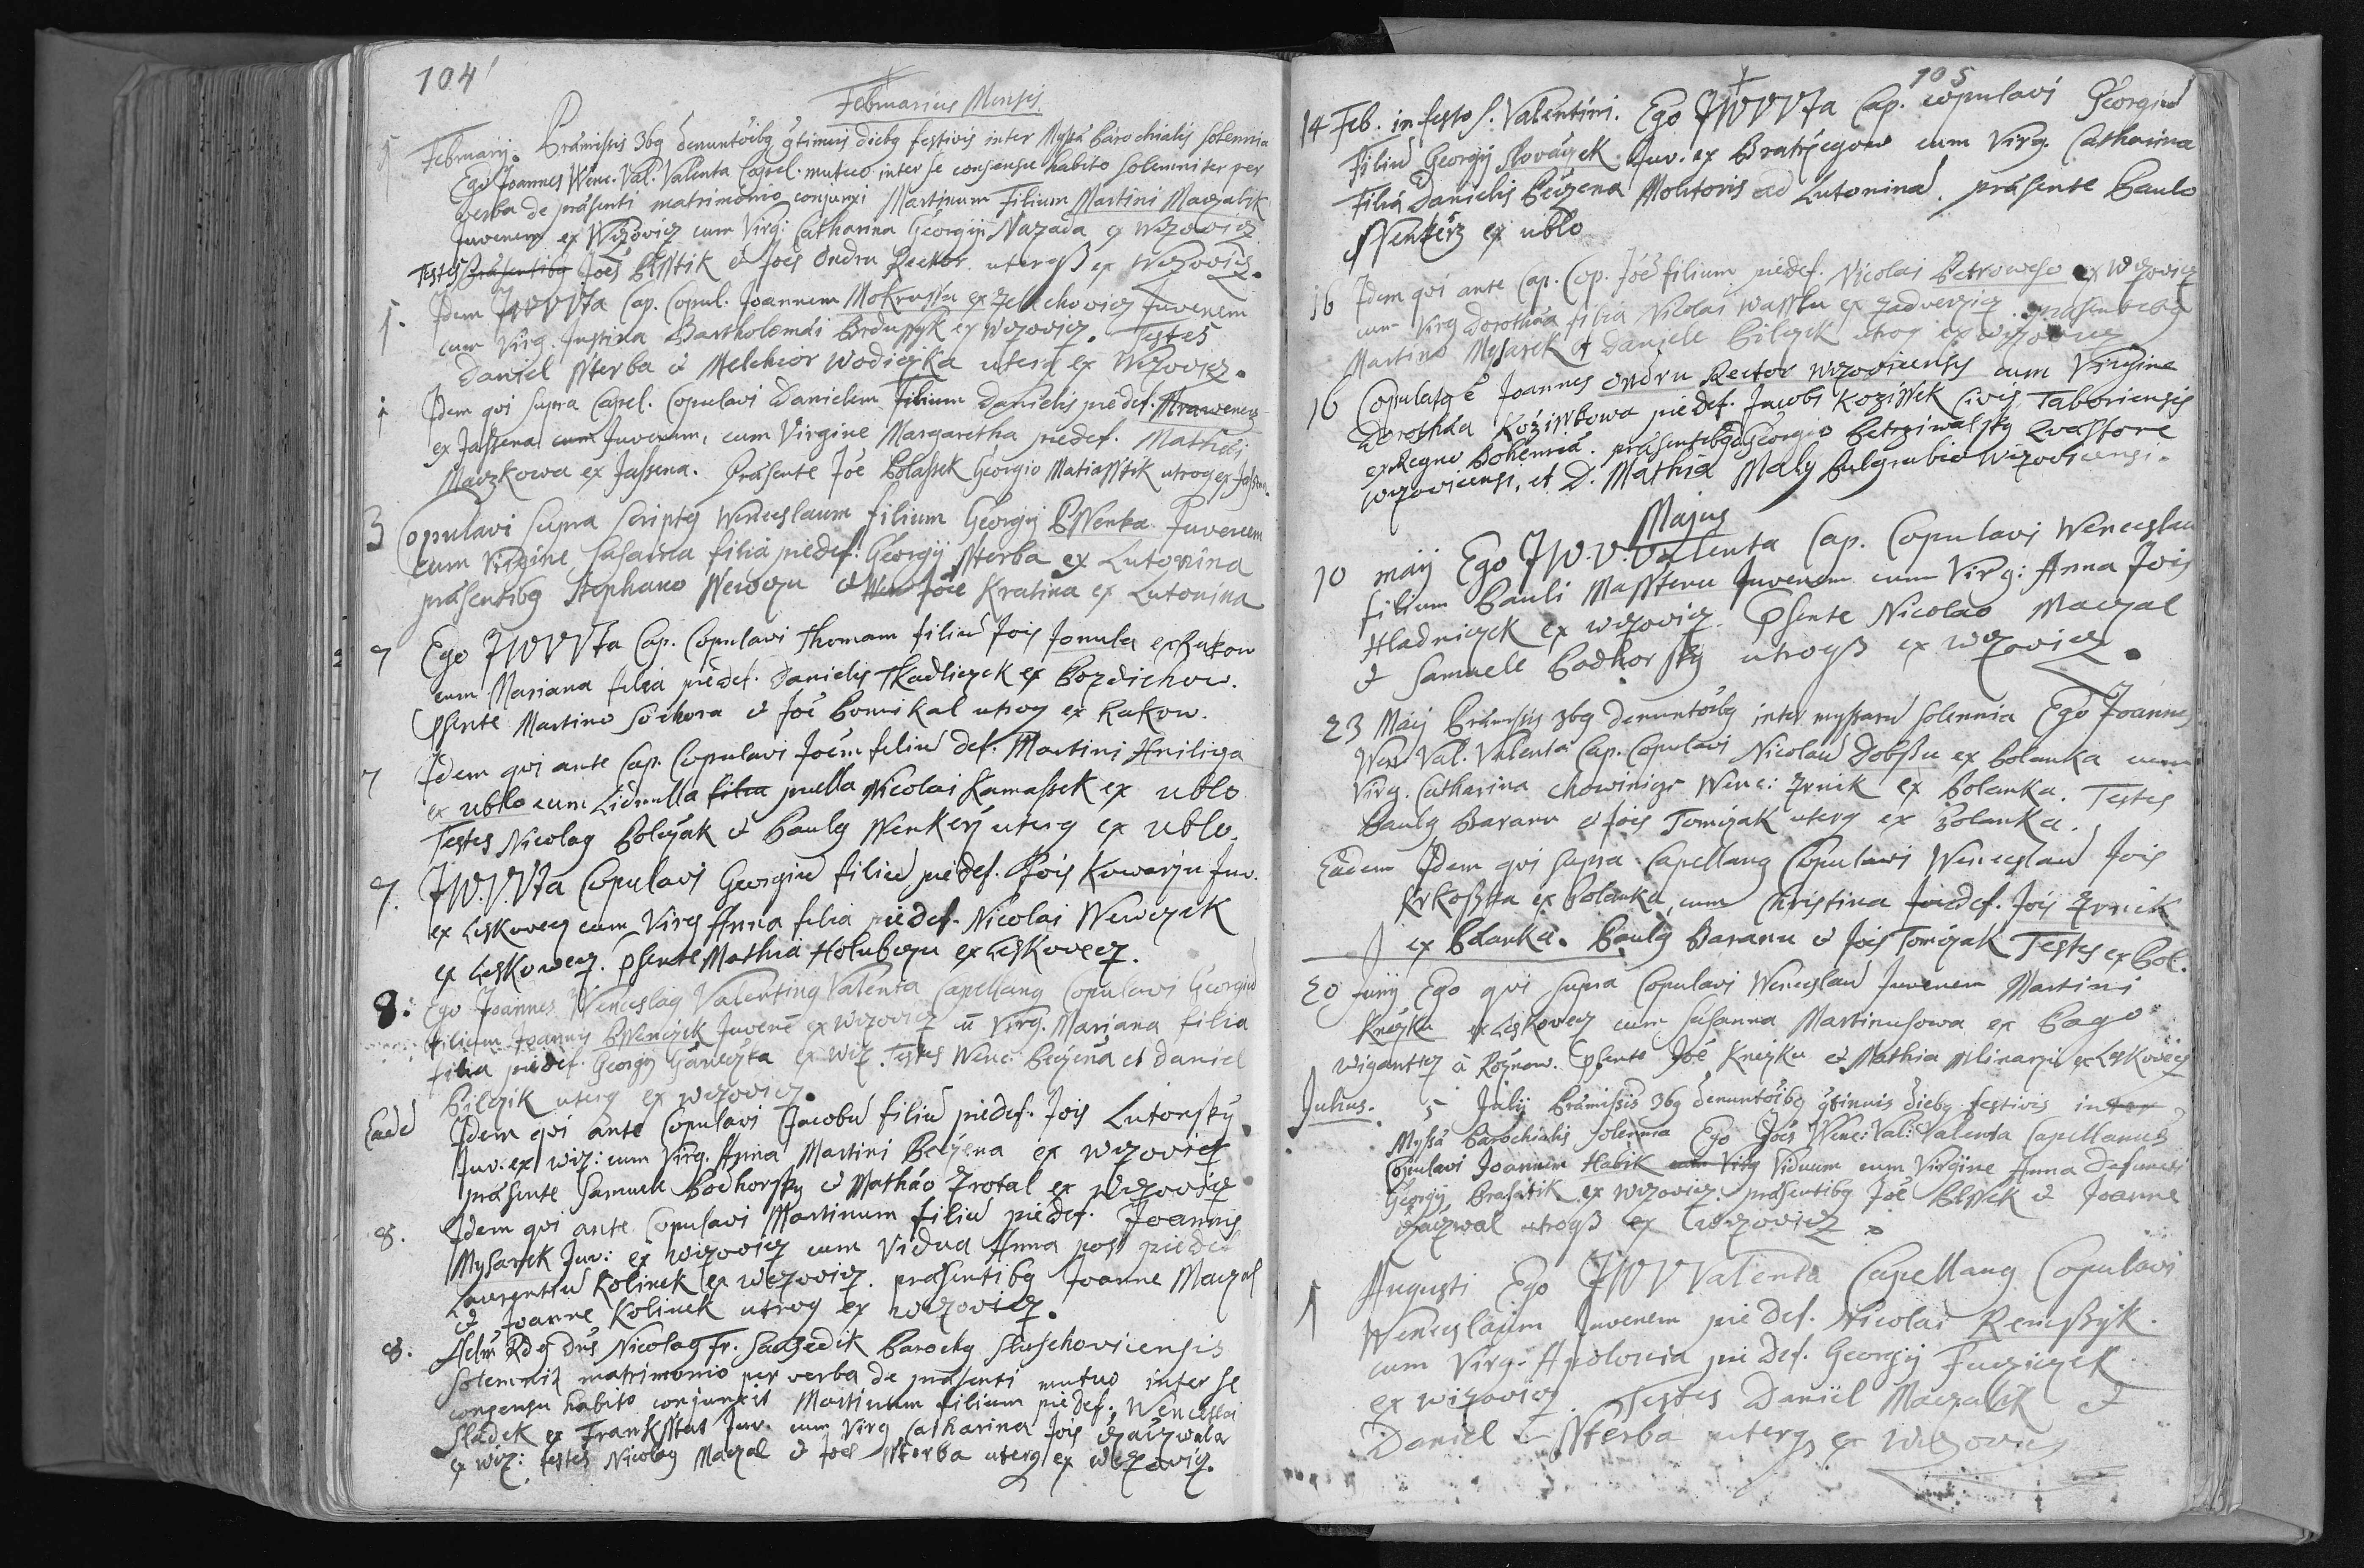 104
Februarius Mensis
1 Februarij. Præmissis 3bg denuntoibg gtinuis diebg festivis inter Myssa Parochialis solennia
Ego Joannes Wenc. Val. Valenta Capel. mutuo inter se consensu habito solemniter per
verba de præsenti matrimonio conjunxi Martinum Filium Martini Maczalik
Juvenem ex Wizowicz cum Virg: Catharina Georgij Nazada ex Wizowicz
Testes Joes & Joes Ondru Rector ex Wizowicz.
1. Idem JWVVta Cap. Copul. Joannem Mokrussu ex Zelechowicz Juvenem
cum Virg. Justina Bartholomæi ex Wizowicz. Testes
Daniel Ssterba & Melchior Wodiczka uterq ex Wizowicz.
1 Idem qvi supra Capel. Copulavi Danielem Filium Danielis piedef.
ex Jassena cum Juvenem, cum Virgine Margaretha piedef. Mathæi
Maczkowa ex Jassena. Præsente Joe Polassek Georgio Matiasstik utroq ex
3 Copulavi supra scriptg Wenceslaum filium Georgij Juvenem
cum Virgine Susanna filia piedef. Georgij Ssterba ex Lutonina
præsentibg Stephano & Joe Kratina ex Lutonina
7 Ego JWVVta Cap. Copulavi Thomam filiu Jois Jonula ex Rakow
cum Mariana filia piedef. Danielis Tkadliczek ex Pozdichow.
Psente Martino Sochora & Joe utroq ex Rakow.
7 Idem qvi ante Cap. Copulavi Joem filiu def. Martini Hnilicza
ex Ublo cum Lidmilla filia puella Nicolai ex Ublo
Testes Nicolag Polczak & Paulg Wenkerz uterq ex Ublo.
7. JW.V.Vta Copulavi Georgiu filiu piedef. Jois Kowarzu Juv.
ex Leskovecz cum Virg Anna filia piedef. Nicolai
ex Leskowecz. Psente Mathia Holubczu ex Leskovecz.
8: Ego Joannes Wenceslag Valenting Valenta Capellang Copulavi Georgiu
filium Joannis Juvene ex Wizovicz cu Virg. Mariana filia
filia piedef. Georgij ex Wiz. Testes Wenc. Peczena et Daniel
Pilczik uterq ex Wizovicz.
Eade Idem qvi ante Copulavi Jacobu filiu piedef. Jois Lutonsky
Juv: ex Wiz: cum Virg. Anna Martini Peczena ex Wizovicz
præsente Samuele Podhorsky & Mathæo Zrotal ex Wizovicz
8. Idem qvi ante Copulavi Martinum filiu piedef. Joannis
Mysarek Juv: ex Wizovicz cum Vidua Anna post piedef
Laurentiu Kolinek ex Wizovicz. præsentibg Joanne Maczal
& Joanne Kolinek utroq ex Wizovicz.
8. Rd Dns Nicolag Fr. Sausedik Parochg Slusschoviensis
Solemnit matrimonio per verba de præsenti mutuo inter se
consensu habito conjunxit Martinum filium piedef. Wenceslai
Sladek ex Frankstat Juv. cum Virg Catharina Jois
ex Wiz: testes Nicolag Maczal & Joes Ssterba uterq ex Wizovicz.
105
14 Feb. in festo S. Valentini. Ego JWVVta Cap. copulavi Georgiu
Filiu Georgij Slovaczek Juv. ex Bratrzegow cum Virg. Catharina
Filia Danielis Peczena Molitoris ad Lutonina. præsente Paulo
Wenkerz ex Ublo
16 Idem qvi ante Cap. Cop. Joe filium piedef. Nicolai Petroweho ex Wizovicz
cum Virg Dorothæa filia Nicolai Wasslu ex Zadverzicz. præsentibg
Martino Mysarek & Daniele Pilczyk utroq ex Wizovicz
16 Copulatg e Joannes Ondru Rector Wizovicensis cum Virgine
Dorothæa Kozisskowa piedef. Jacobi Kozissek Civis Taboriensis
ex Regno Bohemiæ. præsentibg Georgio Petrziwalsky Qvæstore
wizovicensi, et D. Mathia Maly wizovicensi.
Majus
10 maij Ego JW.V.Valenta Cap. Copulavi Wenceslau
filium Pauli Massteru Juvenem cum Virg: Anna Jois
Hladniczek ex Wizovicz. Psente Nicolao Maczal
& Samuele Podhorsky utroqz ex Wizovicz.
23 Maij Præmissis 3bg denuntoibg inter myssaru solennia Ego Joannes
Wen. Val. Valenta Cap. Copulavi Nicolau Dobssu ex Polanka cum
Virg. Catharina chowinicze Wenc: Zrnik ex Polanka. Testes
Paulg Baranu & Jois Tomczak uterq ex Polanka.
Eadem Idem qvi supra Capellang Copulavi Wenceslau Jois
Krkosska ex Polanka, cum Christina piedef. Jois Zrnik
ex Polanka. Paulg Baranu & Jois Tomczak Testes ex Pol.
20 Junij Ego qvi supra Copulavi Wenceslau Juvenem Martini
Knezku ex Leskovecz cum Susanna Martinusowa ex Pago
Wiganticz a Roznow. Psente Joe Knezku & Mathia Mlinarzu ex Leskovecz
Julius. 5 Julij Præmissis 3bg denuntoibg gtinuis diebg festivis inter
Myssa Parochialis solennia Ego Joes Wenc: Val: Valenta Capellanus
Copulavi Joannem Habik cum Virg Viduum cum Virgine Anna defuncti
Georgij ex Wizovicz: præsentibg Joe & Joanne
utroqz ex Wizovicz.
1 Augusti Ego JWVValenta Capellang Copulavi
Wenceslaum Juvenem pie def. Nicolai
cum Virg. Apolonia pie def. Georgij
ex Wizovicz. Testes Daniel Maczalik &
Daniel Ssterba uterq ex Wizovicz